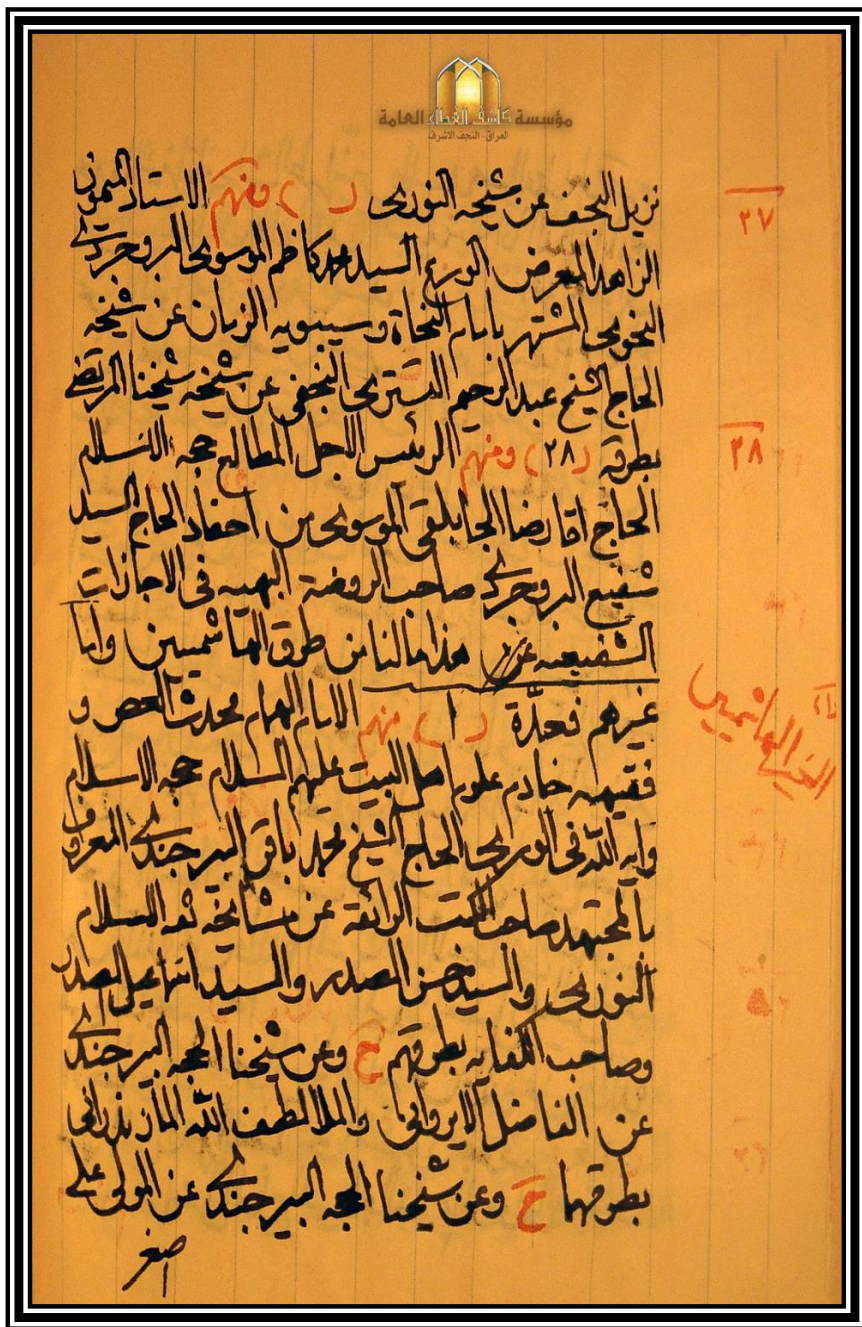 مؤسسة كاشف الغطاء العامة
العراق - النجف الاشرف
نزيل النجف عن شيخه النورى ( ) ومنهم الاستاذ الميمون
٢٧
الزاهد المعرض الورع السيد محمد كاظم الموسوى البروجردي
النحوى المشتهر بامام النحاة وسيبويه الزمان عن شيخه
الحاج الشيخ عبد الرحيم التسترى النجفى عن شيخه شيخنا المرتضى
بطرقه (٢٨) ومنهم الرئيس الاجل المطاع حجه الاسلام
٢٨
الحاج اقا رضا الجابلقى الموسوى من احفاد الحاج السيد
شفيع البروجردي صاحب الروضة البهيه فى الاجازات
الشفيعيه عن هذا مالنا من طرق الهاشميين واما
غيرهم فعدّة (١) منهم الامام الهمام محدث العصر و
الغير الهاشميين
فقيهه خادم علوم اهل البيت عليهم السلام حجه الاسلام
وايه الله فى الورى الحاج الشيخ محمد باقر البيرجندي المعروف
بالمجتهد صاحب الكتب الرائقة عن مشايخه ثقه الاسلام
النورى والسيد حسن الصدر والسيد اسماعيل الصدر
وصاحب الكفايه بطرقهم ح وعن شيخنا الحجه البيرجندي
عن الفاضل الايروانى والملا لطف الله المازندرانى
بطرقهما ح وعن شيخنا الحجه البيرجندي عن المولى على
اصغر